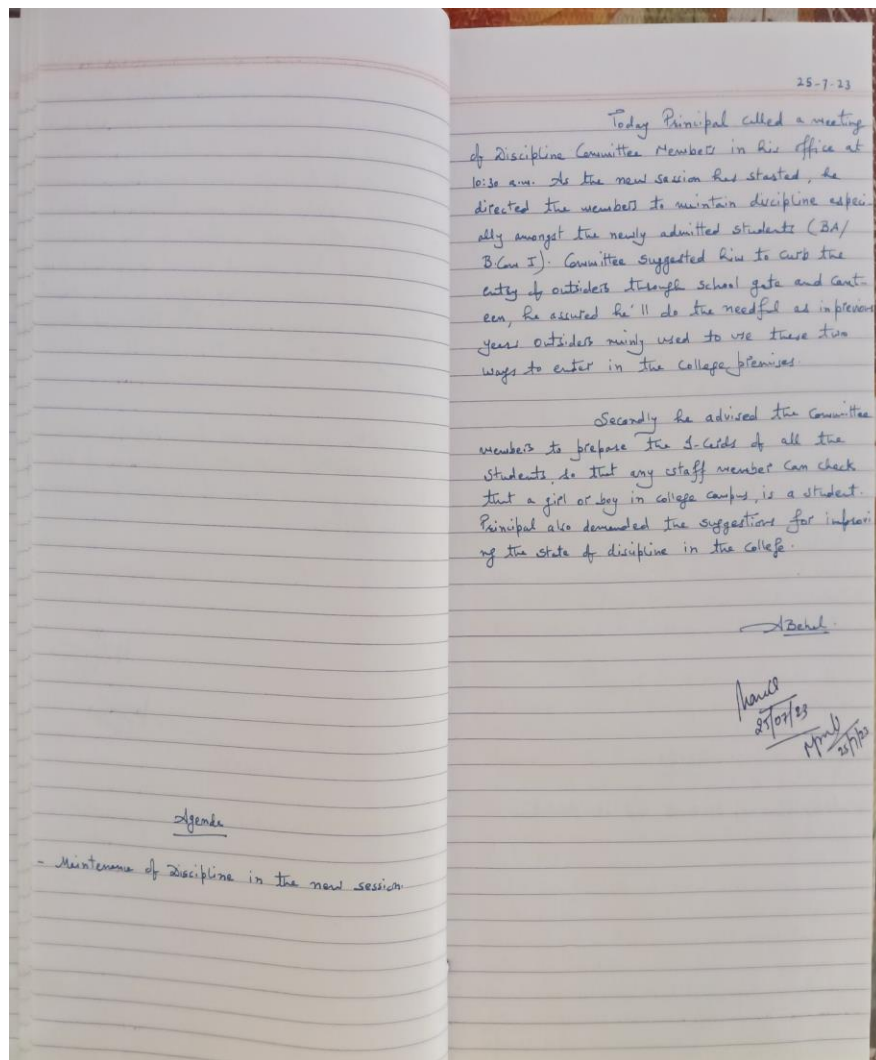 Agenda
- Maintenance of Discipline in the new session.
25-7-23
Today Principal called a meeting
of Discipline Committee Members in his office at
10:30 a.m. As the new session has started, he
directed the members to maintain discipline especi-
ally amongst the newly admitted students (BA/
B.Com I). Committee suggested him to curb the
entry of outsiders through school gate and cant-
een, he assured he'll do the needful as in previous
years outsiders mainly used to use these two
ways to enter in the college premises.
Secondly he advised the committee
members to prepare the I-Cards of all the
students, so that any staff member can check
that a girl or boy in college campus, is a student.
Principal also demanded the suggestions for improvi
ng the state of discipline in the college.
ABehal.
25/07/23
25/7/23